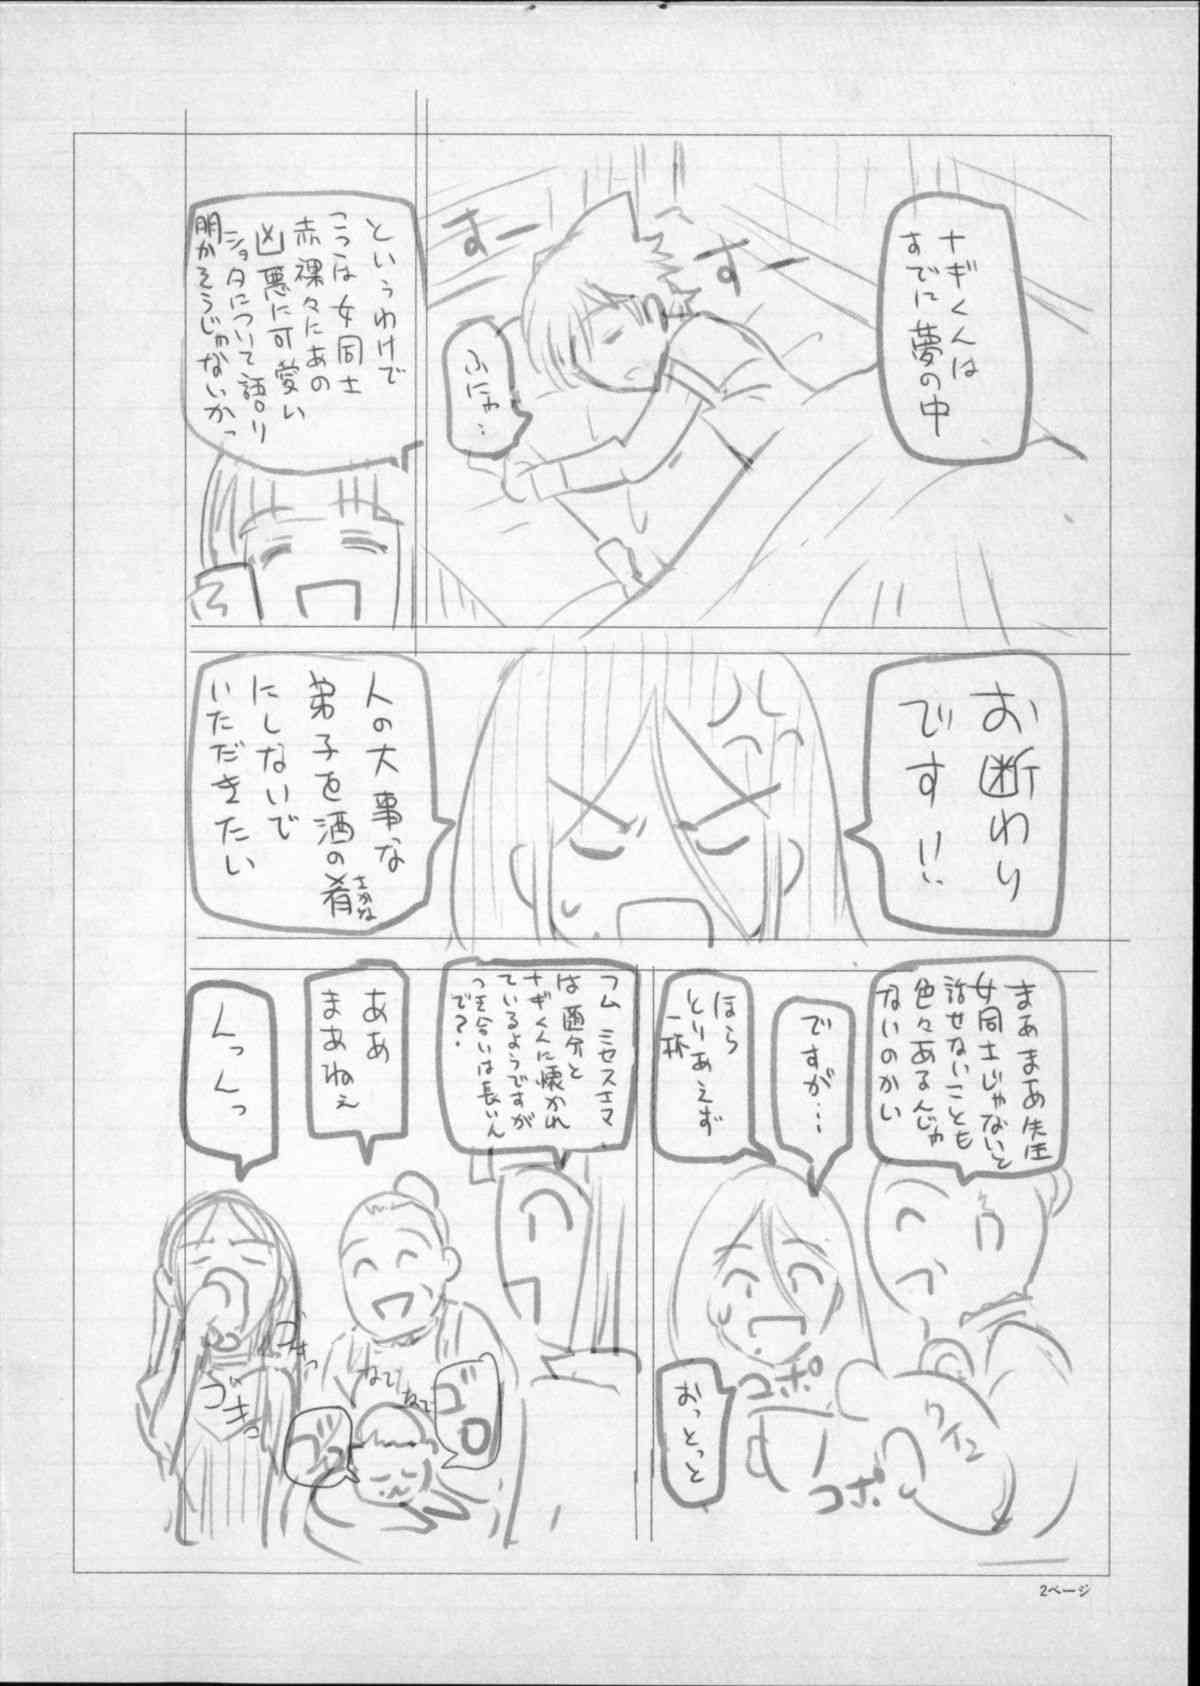 ナギくんは
すでに夢の中
すー
すー
ふにゃ…
というわけで
こっは女同士
赤裸々にあの
凶悪に可愛い
ショタについて語り
明かそうじゃないかっ
お断わり
です!!
人の大事な
弟子を酒の肴
さかな
にしないで
いただきたい
まあまあ先生
女同士じゃないと
話せないことも
色々あるんじゃ
ないのかい
ですが…
ほら
とりあえず
一杯
おっとっと
コポ
コポ
ワイン
フム ミセスエマ
は随分と
ナギくんに懐かれ
ているようですが
つき合いは長いん
で?
ああ
まあねぇ
んっんっ
づきっ
づきっ
ねて
ねて
ゴロ
ゴロ
2ページ